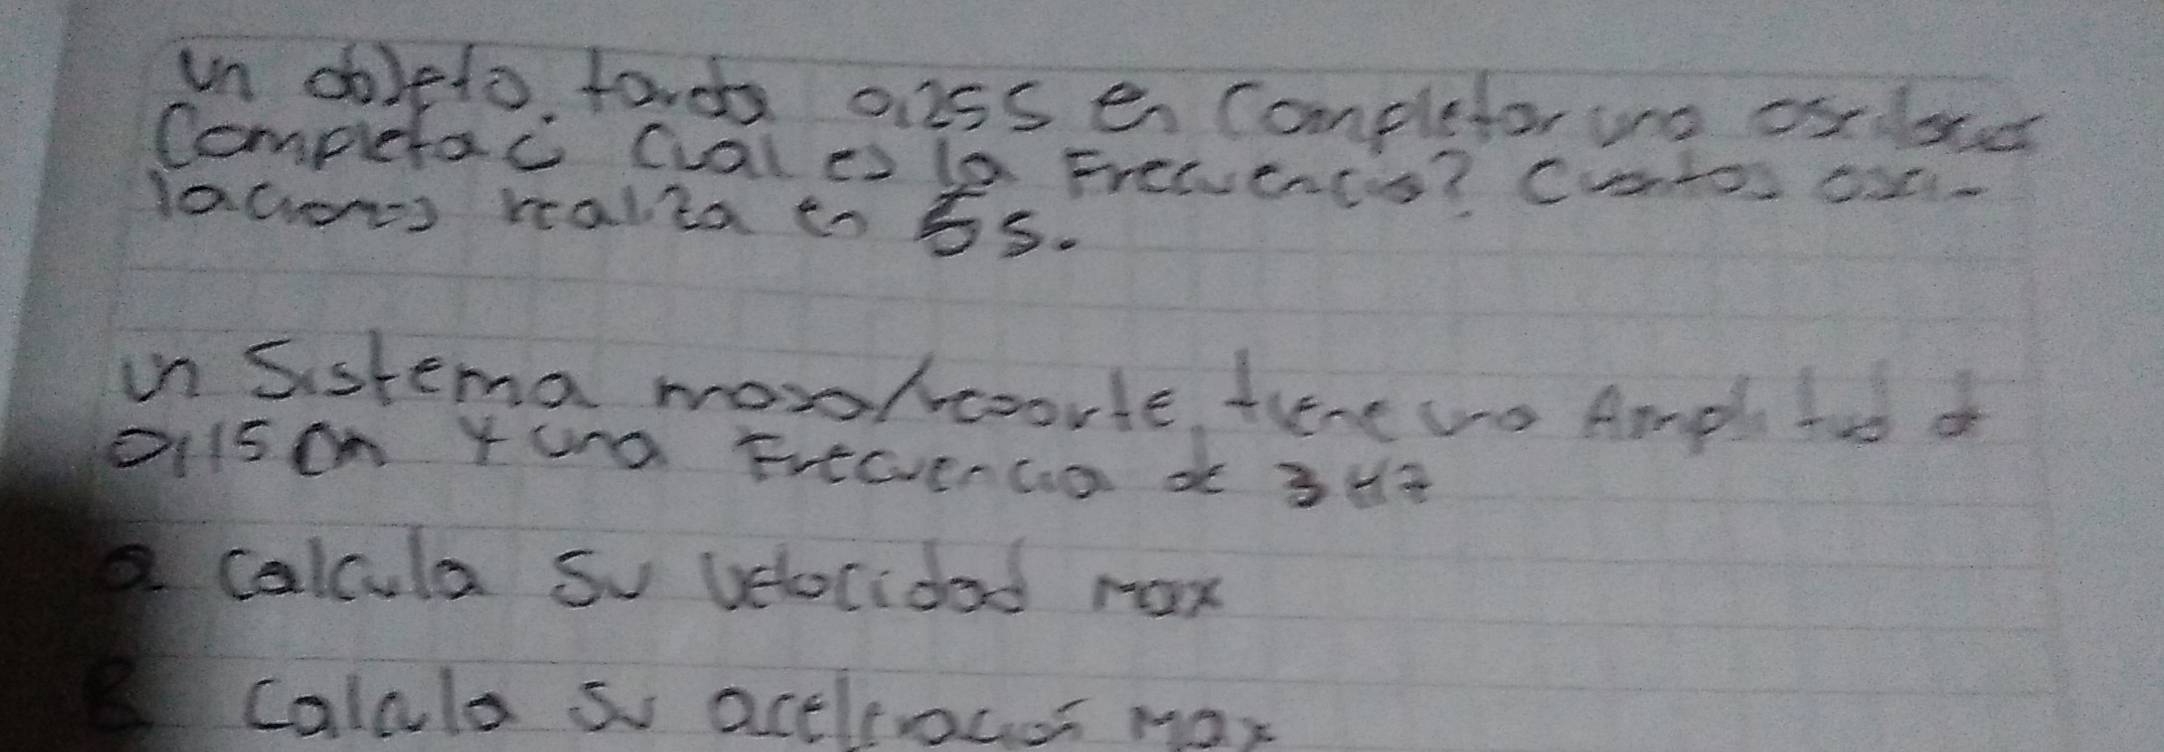 un objeto tarda 0,25 s en Completar una oscilación
Completa ¿ Cual es la Frecuencia? Cuantas osci-
laciones realiza en 5s.
un Sistema masa/resorte, tiene una Amplitud de
0,15 cm y una Frecuencia de 3 Hz
a calcula Su Velocidad Max
B calcula Su aceleración Max